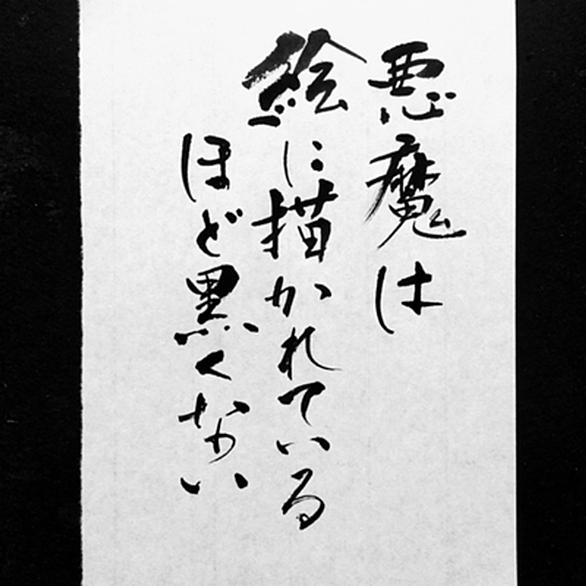 悪魔は
絵に描かれている
ほど黒くない